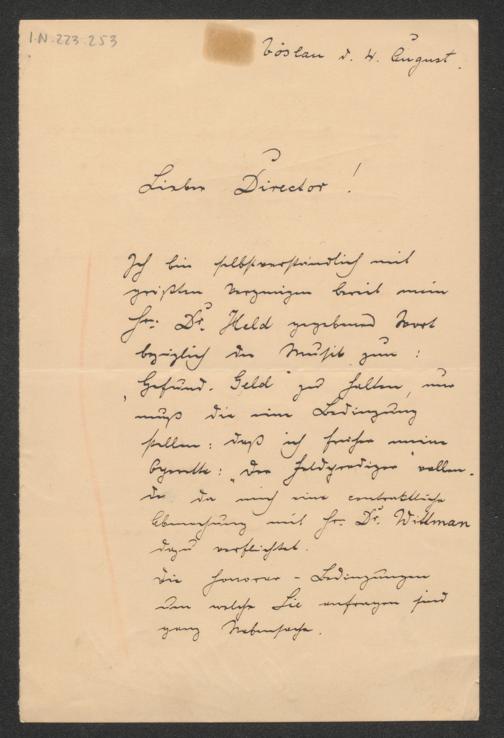 I.N. 223.253
Vöslau d. 4. August.
Lieber Director!
Ich bin selbstverständlich mit
größten Vergnügen bereit mein
Hr. Dr. Held gegebenes Wort
bezüglich der Musik zum :
„Gefund. Geld" zu halten, nur
muß die eine Bedingung
stellen : daß ich früher meine
Operette : „Der Feldprediger" vollen-
de da mich eine contraktliche
Abmachung mit Hr. Dr. Wittman
dazu verpflichtet.
Die Honorar-Bedingungen
um welche Sie anfragen sind
ganz Nebensache.